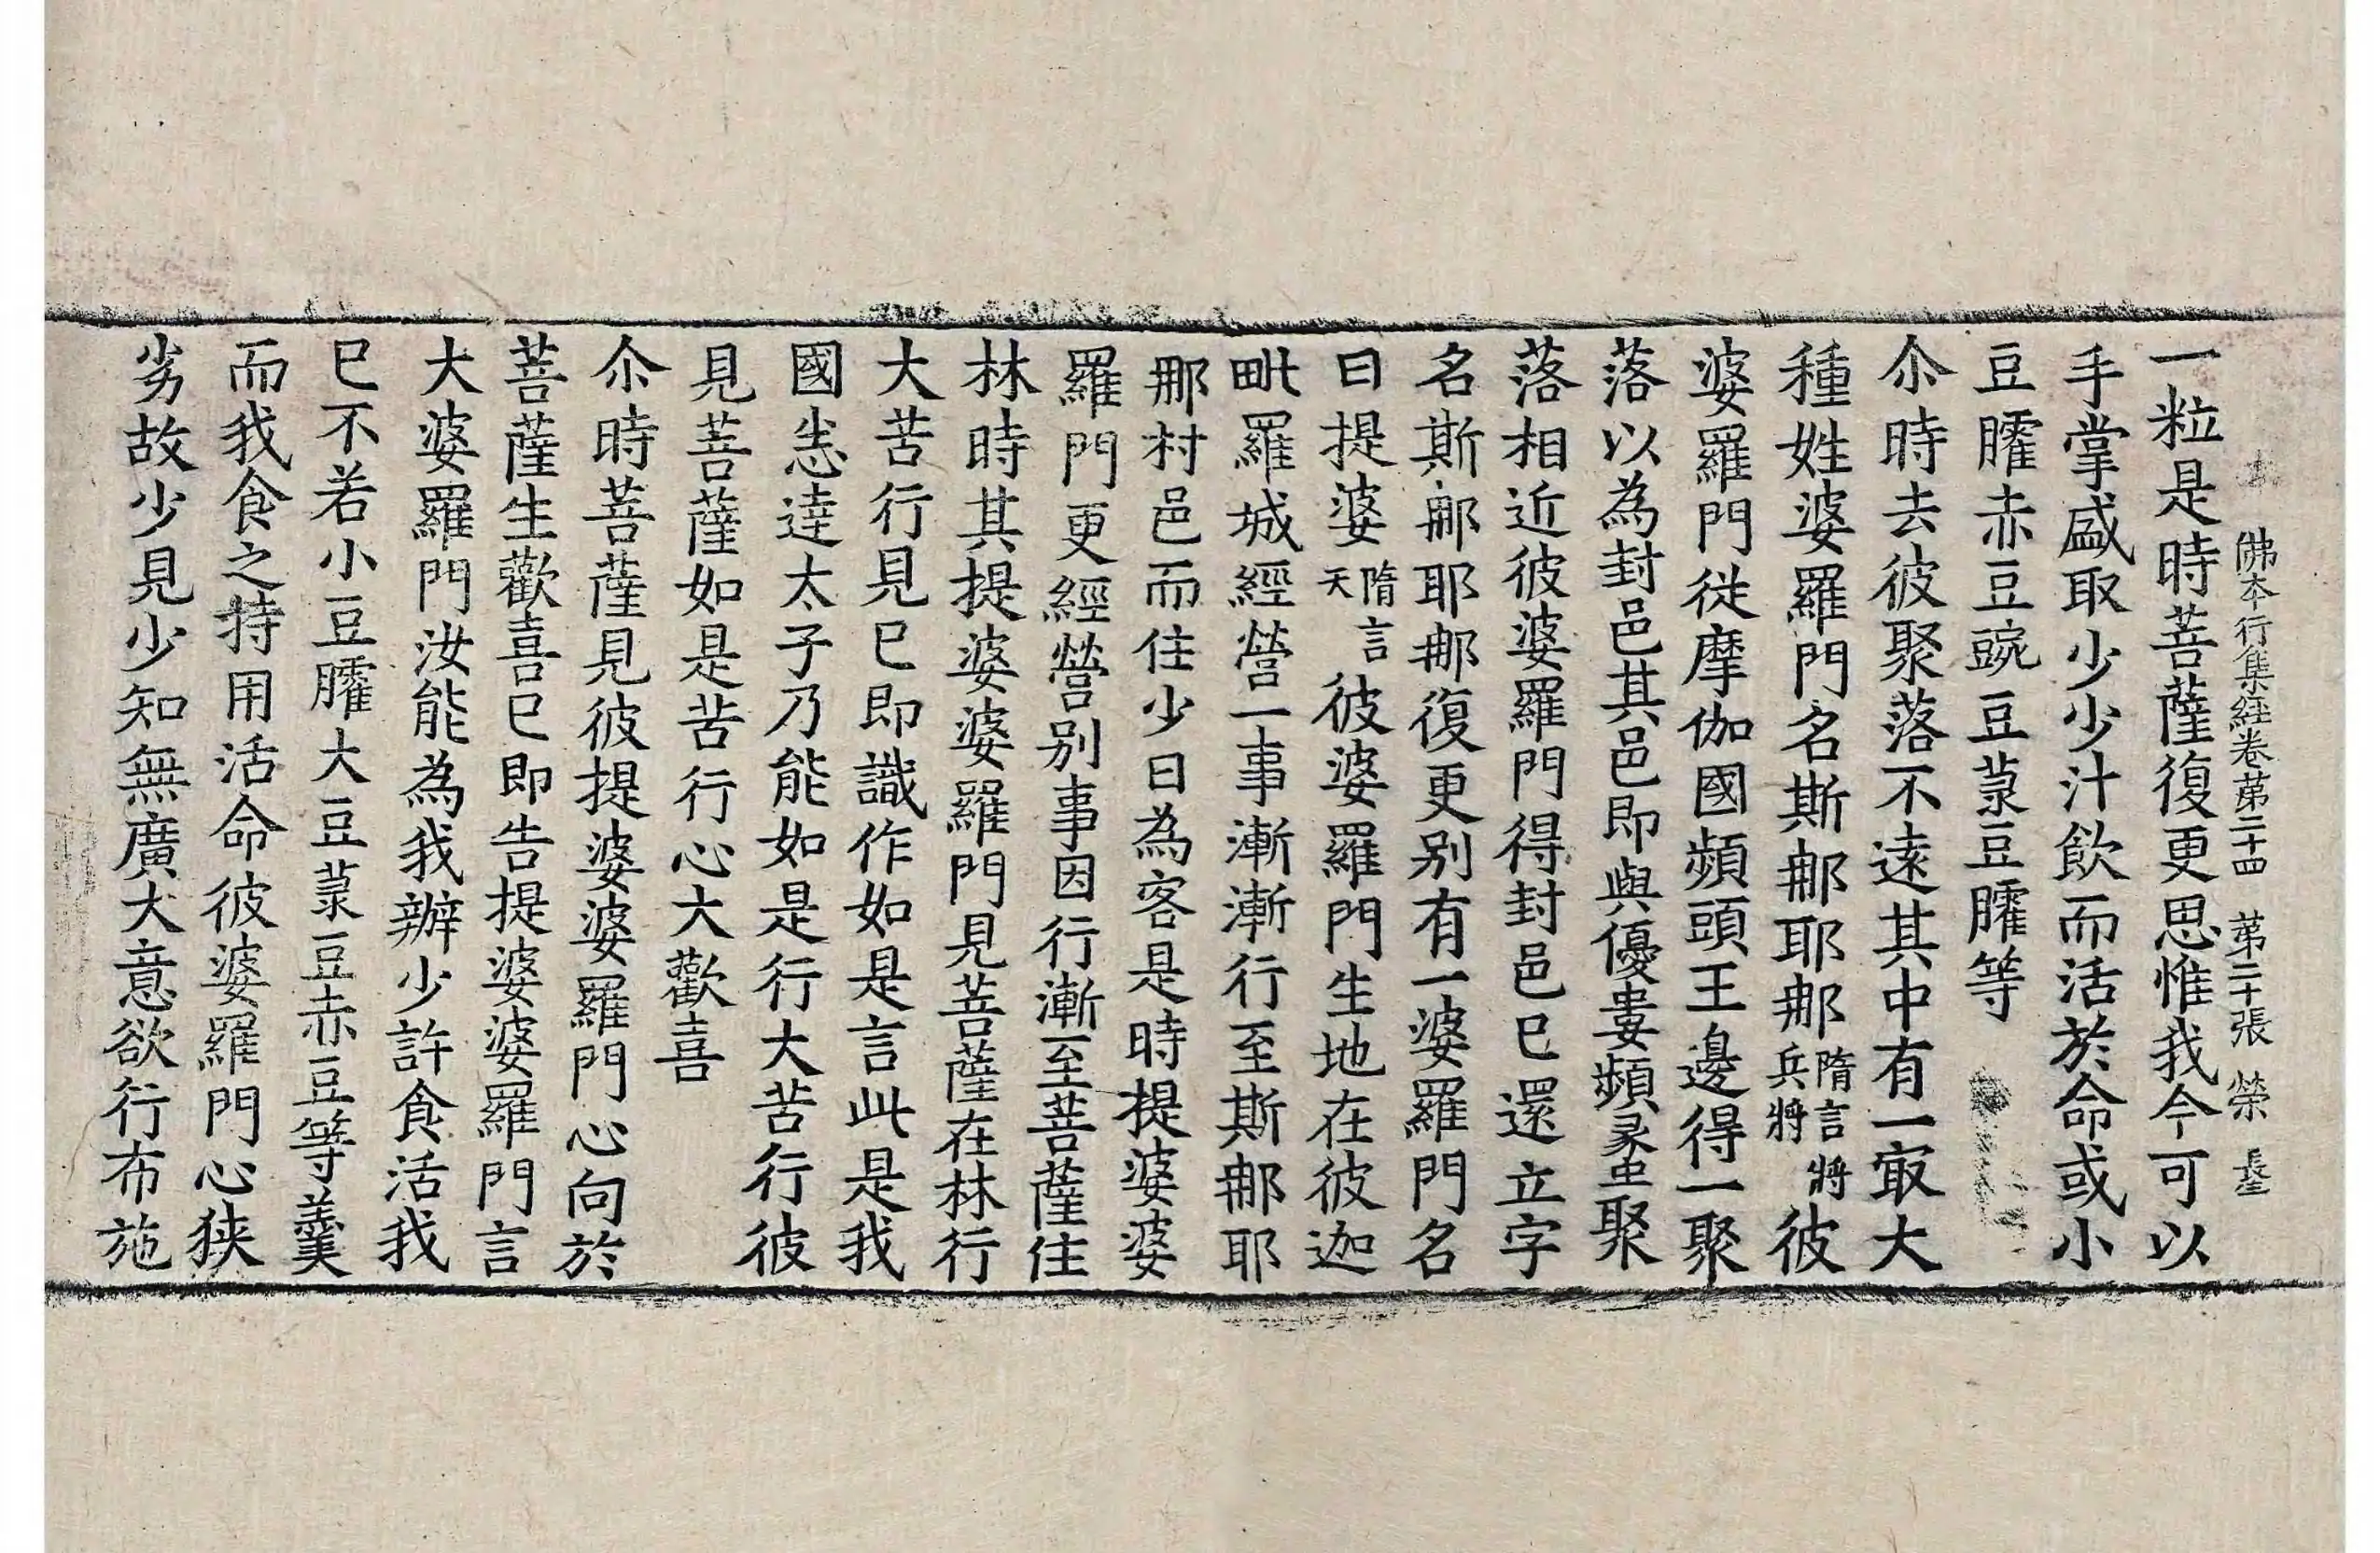 佛本行集經卷苐二十四　苐二十張　榮
一粒是時菩薩復更思惟我今可以
手掌盛取少少汁飲而活於命或小
豆臛赤豆豌豆菉豆臛等
尒時去彼聚落不遠其中有一㝡大
種姓婆羅門名斯那耶那隋言將兵將彼
婆羅門從摩伽國頻頭王邊得一聚
落以為封邑其邑即與優婁頻螺聚
落相近彼婆羅門得封邑已還立字
名斯那耶那復更別有一婆羅門名
曰提婆隋言天彼婆羅門生地在彼迦
毗羅城經營一事漸漸行至斯那耶
那村邑而住少日為客是時提婆婆
羅門更經營別事因行漸至菩薩住
林時其提婆婆羅門見菩薩在林行
大苦行見已即識作如是言此是我
國悉達太子乃能如是行大苦行彼
見菩薩如是苦行心大歡喜
尒時菩薩見彼提婆婆羅門心向於
菩薩生歡喜已即告提婆婆羅門言
大婆羅門汝能為我辦少許食活我
已不若小豆臛大豆菉豆赤豆等羹
而我食之持用活命彼婆羅門心狹
劣故少見少知無廣大意欲行布施